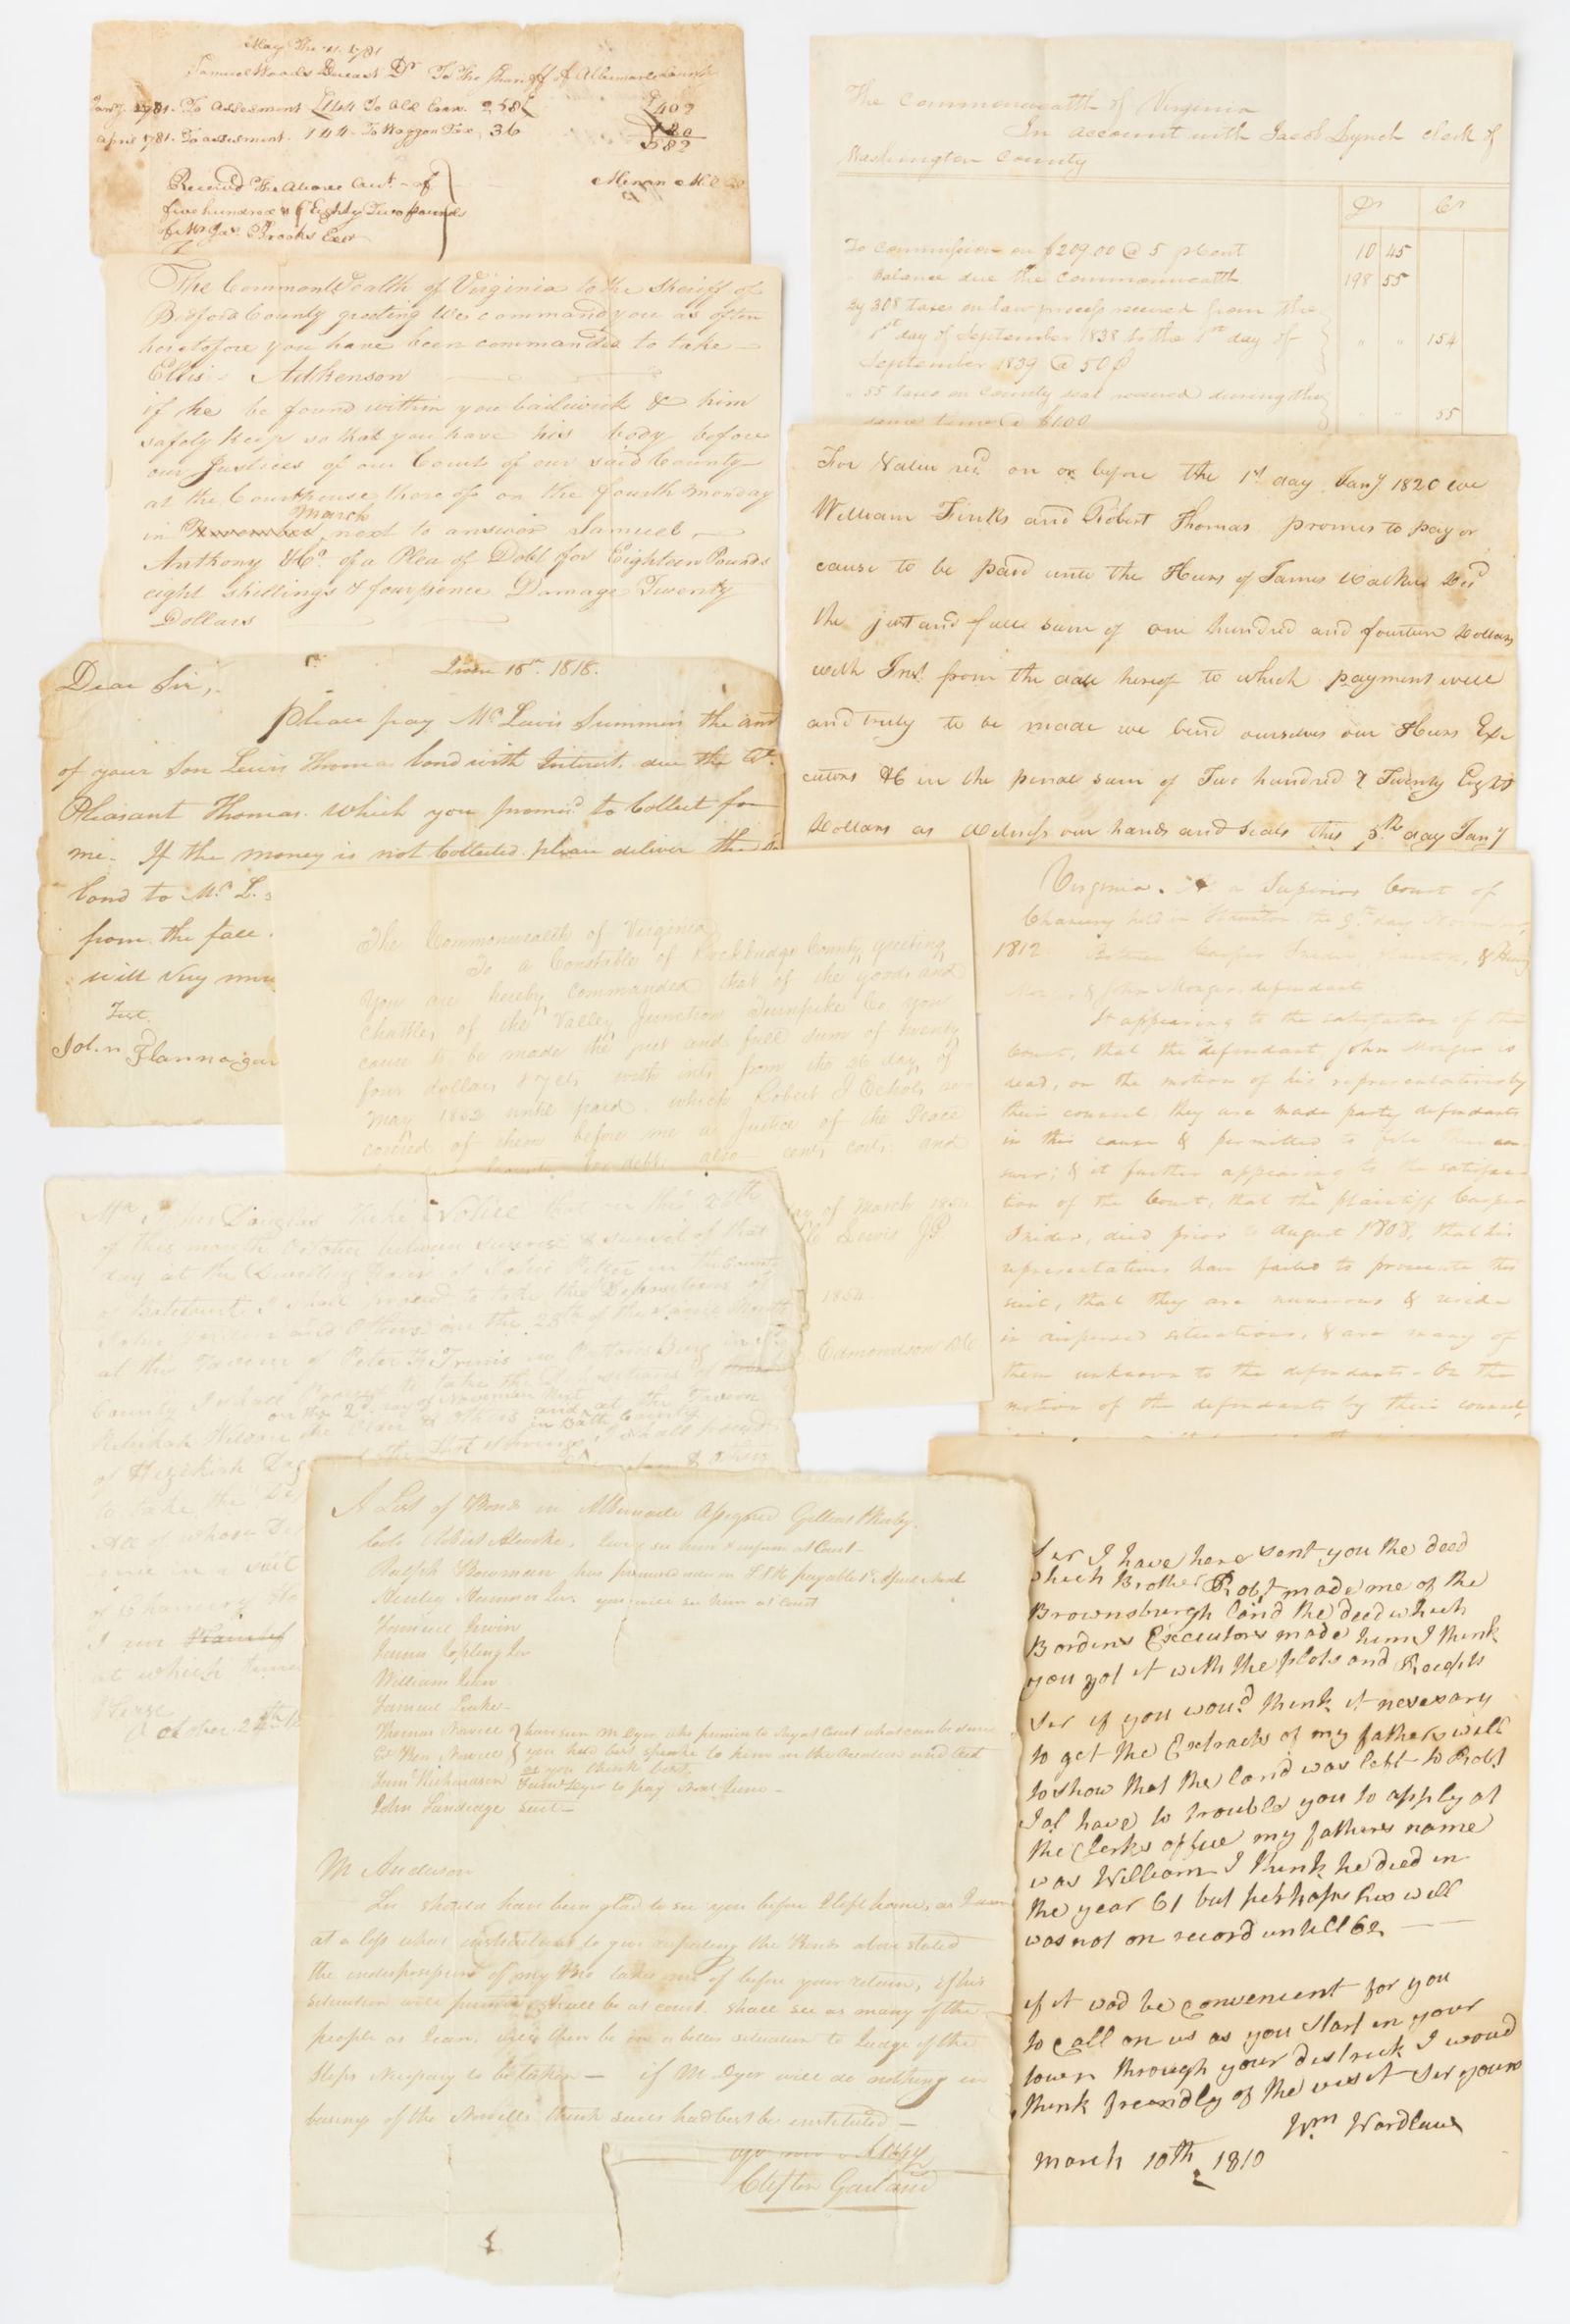 May The 21 1781
Samuel Woods Deceast Dr To The Sheriff of Albemarle County
Jany 1781. To Assesment £144 To Old Exon. 258£ £402
April 1781. To assesment. 144. To Waggon Tax, 36 180
582
Receivd The Above Amt. of
five hundred & Eighty Two pounds
of Mr Jas. Brooks Exer
The CommonWealth of Virginia to the Sheriff of
Bedford County greeting We command you as often
heretofore you have been commanded to take
Ellis Adkenson
if he be found within you bailiwick & him
safely keep so that you have his body before
our Justices of our Court of our said County
at the Courthouse thereof on the fourth Monday
March
in November next to answer Samuel
Anthony &Co. of a Plea of Debt for Eighteen Pounds
eight shillings & fourpence Damage Twenty
Dollars
The Commonwealth of Virginia
In account with Jacob Lynch clerk of
Washington County
Dr Cr
To commission on $209.00 @ 5 pCent 10 45
" Balance due the Commonwealth 198 55
By 308 taxes on law process received from the
1st day of September 1838 to the 1st day of " " 154
September 1839 @ 50¢
" 55 taxes on County seal received during the
same time @ $1.00 " " 55
For Value recd on or before the 1st day Jany 1820 we
William Finks and Robert Thomas promis to pay or
cause to be paid unto the Heirs of James Walker Decd
the just and full sum of one hundred and fourteen Dollars
with Inst from the date hereof to which payment well
and truly to be made we bind ourselves our Heirs Exe
cutors &C in the penal sum of Two hundred & Twenty Eight
Dollars as Witness our hands and seals this 5th day Jany
Dear Sir, June 15th. 1818.
Please pay Mr. Lewis Summers the amt
of your Son Lewis Thomas bond with Interest, due the
Pleasant Thomas. Which you promisd to Collect for
me. If the money is not Collected please deliver the sd
bond to Mr. L.
from the face.
will Very mu
Test.
John Flannagan
The Commonwealth of Virginia
To a Constable of Rockbridge County, greeting,
You are hereby commanded that of the goods and
chattles of the Valley Junction Turnpike Co you
cause to be made the just and full sum of twenty
four dollars & 78 cts with int from the 26 day of
May 1852 until paid. which Robert J Echols re
covered of them before me a Justice of the Peace
debt, also cents costs and
day of March 1854
Lewis JP
1854
Edmondson
Virginia. At a Superior Court of
Chancery held in Staunton the 9th day November
1812 Between Casper Snider, plaintiff, & Henry
& John Monger, defendants
It appearing to the satisfaction of the
Court, that the defendant, John Monger is
dead, on the motion of his representatives by
their counsel they are made party defendants
in this cause & permitted to file their an
swer; & it further appearing to the satisfac
tion of the Court, that the plaintiff Casper
Snider, died prior to August 1808, that his
representatives have failed to prosecute this
suit, that they are numerous & reside
in dispersed situations, & are many of
them unknown to the defendants. On the
motion of the defendants by their counsel,
Mr. John Douglas Take Notice that on the 26th
of this month October between sunrise & sunset of that
day at the Dwelling House of in the County
of Botetourt I shall proceed to take the Depositions of
John and Others on the 28th of the same Month
at the Tavern of Peter in
County I shall Proceed to take the Depositions of
on the 2d. day of November Next
Rebekah Wilson & Others and at the Tavern
in Bath County
of Hezekiah I shall proceed
to take the De & Others
All of Whose De
ence in a suit
of Chancery
I am Plaintif
at which time
Please
October 24th
A List of Bonds in Albemarle Assigned Gilliat & Kirby.
see him & inform at Court
Ralph Bowman has promised me £ payable 1st. April Next
you will see him at Court
Samuel Irwin
James Kopling Jr
William
Samuel
Thomas Novell } have seen Mr. Dyer who promises to say at Court what can be done
Novell } you had best speake to him on the Occasion and Act
as you think best.
Saml Richardson to pay Next June
John Sandidge suit
Mr Anderson
Sir should have been glad to see you before I left home, as I am
at a loss what instructions to give respecting the Bonds above stated
the indisposition of my Bro takes me of before your return, if his
situation will permit, I shall be at Court. shall see as many of the
people as I can, will then be in a better situation to Judge of the
steps necessary to be taken — if Mr. Dyer will do nothing in
behalf of the Novells think suits had best be instituted —
Clifton Garland
Ser I have here sent you the deed
which Brother Robt made me of the
Brownsburgh land the deed which
Bordens Executors made him I think
you got it with the plots and Receipts
Ser if you woud think it nesesary
to get the Extracts of my fathers will
to show that the land was left to Robt
Ial have to trouble you to apply at
the Clerks office my fathers name
was William I think he died in
the year 61 but perhaps his will
was not on record untill 62
if it wod be convenient for you
to call on us as you start in your
tower through your destrick I woud
think freendly of the viset Ser yours
Wm Wardlaw
March 10th 1810